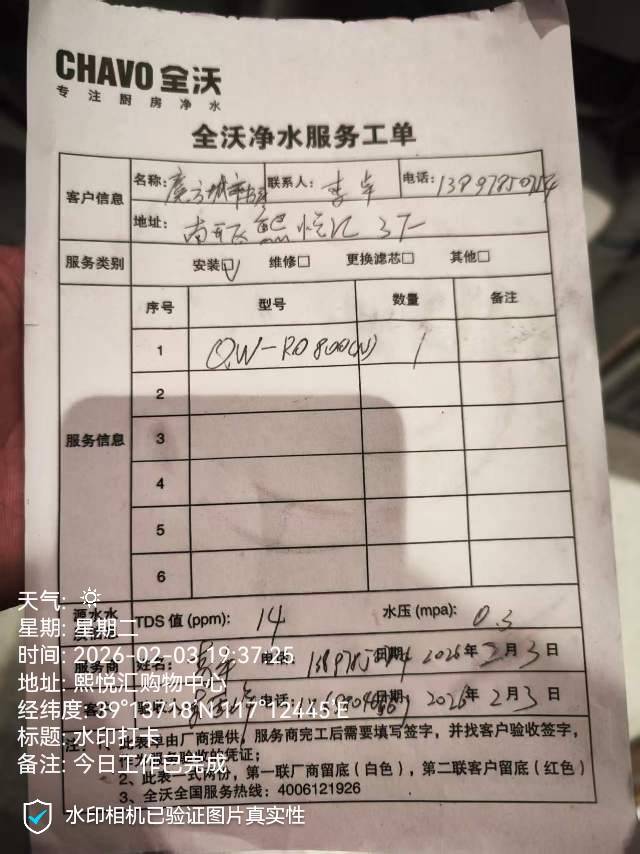 CHAVO 全沃
专注厨房净水
全沃净水服务工单
客户信息
名称: 联系人: 李 电话:
地址: 南开 熙悦汇 3F
服务类别 安装☑ 维修□ 更换滤芯□ 其他□
服务信息
序号 型号 数量 备注
1 QW-RO800(N) 1
2
3
4
5
6
源水水 TDS 值 (ppm): 14 水压 (mpa): 0.3
服务商 姓名: 电话: 日期: 2026年2月3日
客户 电话: 日期: 2026年2月3日
注: 1、此表单由厂商提供,服务商完工后需要填写签字,并找客户验收签字,
作为服务验收的凭证;
2、此表一式两份,第一联厂商留底(白色),第二联客户留底(红色)
3、全沃全国服务热线:4006121926
天气: ☀
星期: 星期二
时间: 2026-02-03 19:37:25
地址: 熙悦汇购物中心
经纬度: 39°13'718"N 117°12'445"E
标题: 水印打卡
备注: 今日工作已完成
水印相机已验证图片真实性